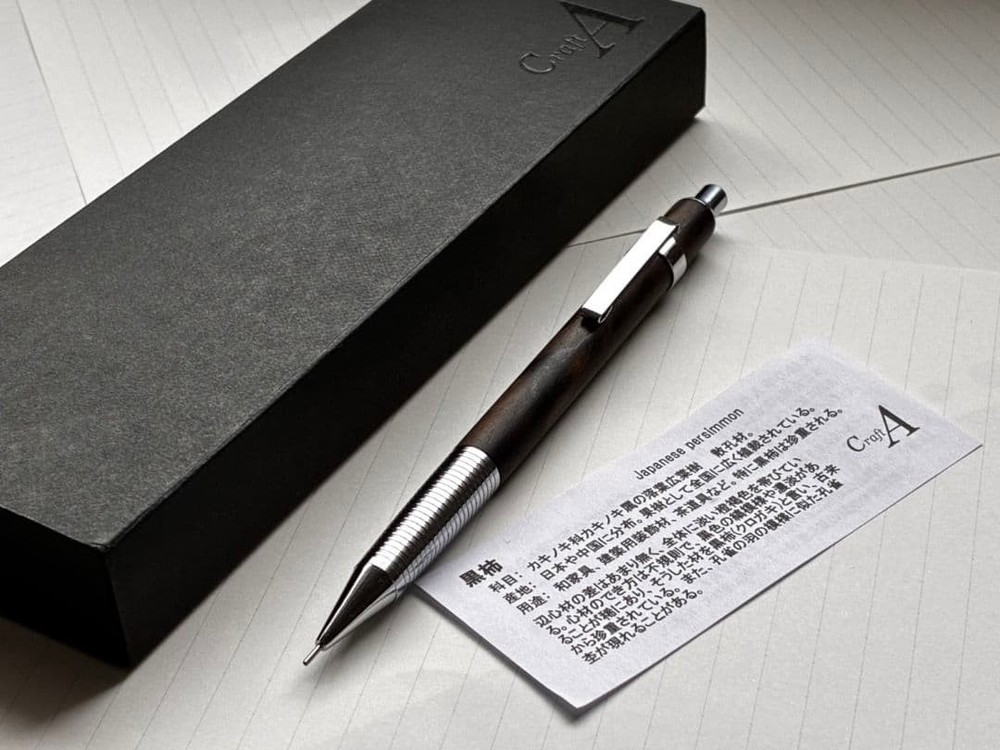 Craft A
黒柿
Japanese persimmon
科目: カキノキ科カキノキ属の落葉広葉樹 散孔材。
産地: 日本や中国に分布。果樹として全国に広く植栽されている。
用途: 和家具、建築用装飾材、茶道具など。特に黒柿は珍重される。
辺心材の差はあまり無く、全体に淡い橙褐色を帯びてい
る。心材のでき方は不規則で、黒色の縞模様や濃淡があ
ることが稀にあり、そうした材を黒柿(クロガキ)と言い、古来
から珍重されている。また、孔雀の羽の模様に似た孔雀
杢が現れることがある。
Craft A